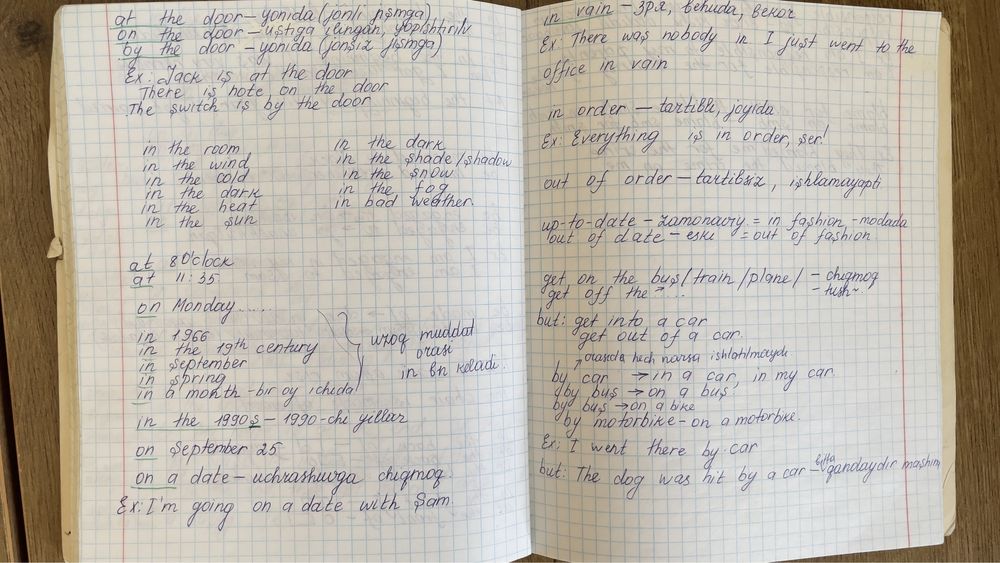 at the door – yonida (jonli jismga)
on the door – ustiga ilingan, yopishtirib
by the door – yonida (jonsiz jismga)
Ex: Jack is at the door
There is note on the door
The switch is by the door
in the room
in the wind
in the cold
in the dark
in the heat
in the sun
in the dark
in the shade/shadow
in the snow
in the fog
in bad weather.
at 8 O'clock
at 11:35
on Monday.....
in 1966
in the 19th century
in September
in spring
in a month – bir oy ichida
uzoq muddat
orasi
in bn keladi.
in the 1990s – 1990-chi yillar
on September 25
on a date – uchrashuvga chiqmoq.
Ex: I'm going on a date with Sam.
in vain – зря, behuda, bekor
Ex: There was nobody in. I just went to the
office in vain
in order – tartibli, joyida
Ex: Everything is in order, ser!
out of order – tartibsiz, ishlamayapti
up-to-date – zamonaviy = in fashion – modada
out of date – eski = out of fashion
get on the bus/train/plane/ – chiqmoq
get off the ..... – tush~
but: get into a car
get out of a car.
↗ orasida hech narsa ishlatilmaydi
by car → in a car, in my car
by bus → on a bus
by bus → on a bike
by motorbike – on a motorbike.
Ex: I went there by car
but: The dog was hit by a car – bitta qandaydir mashina